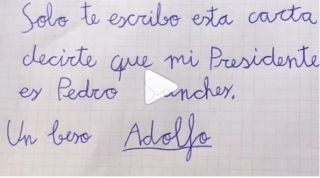 Solo te escribo esta carta
decirte que mi Presidente
es Pedro
Un beso Adolfo